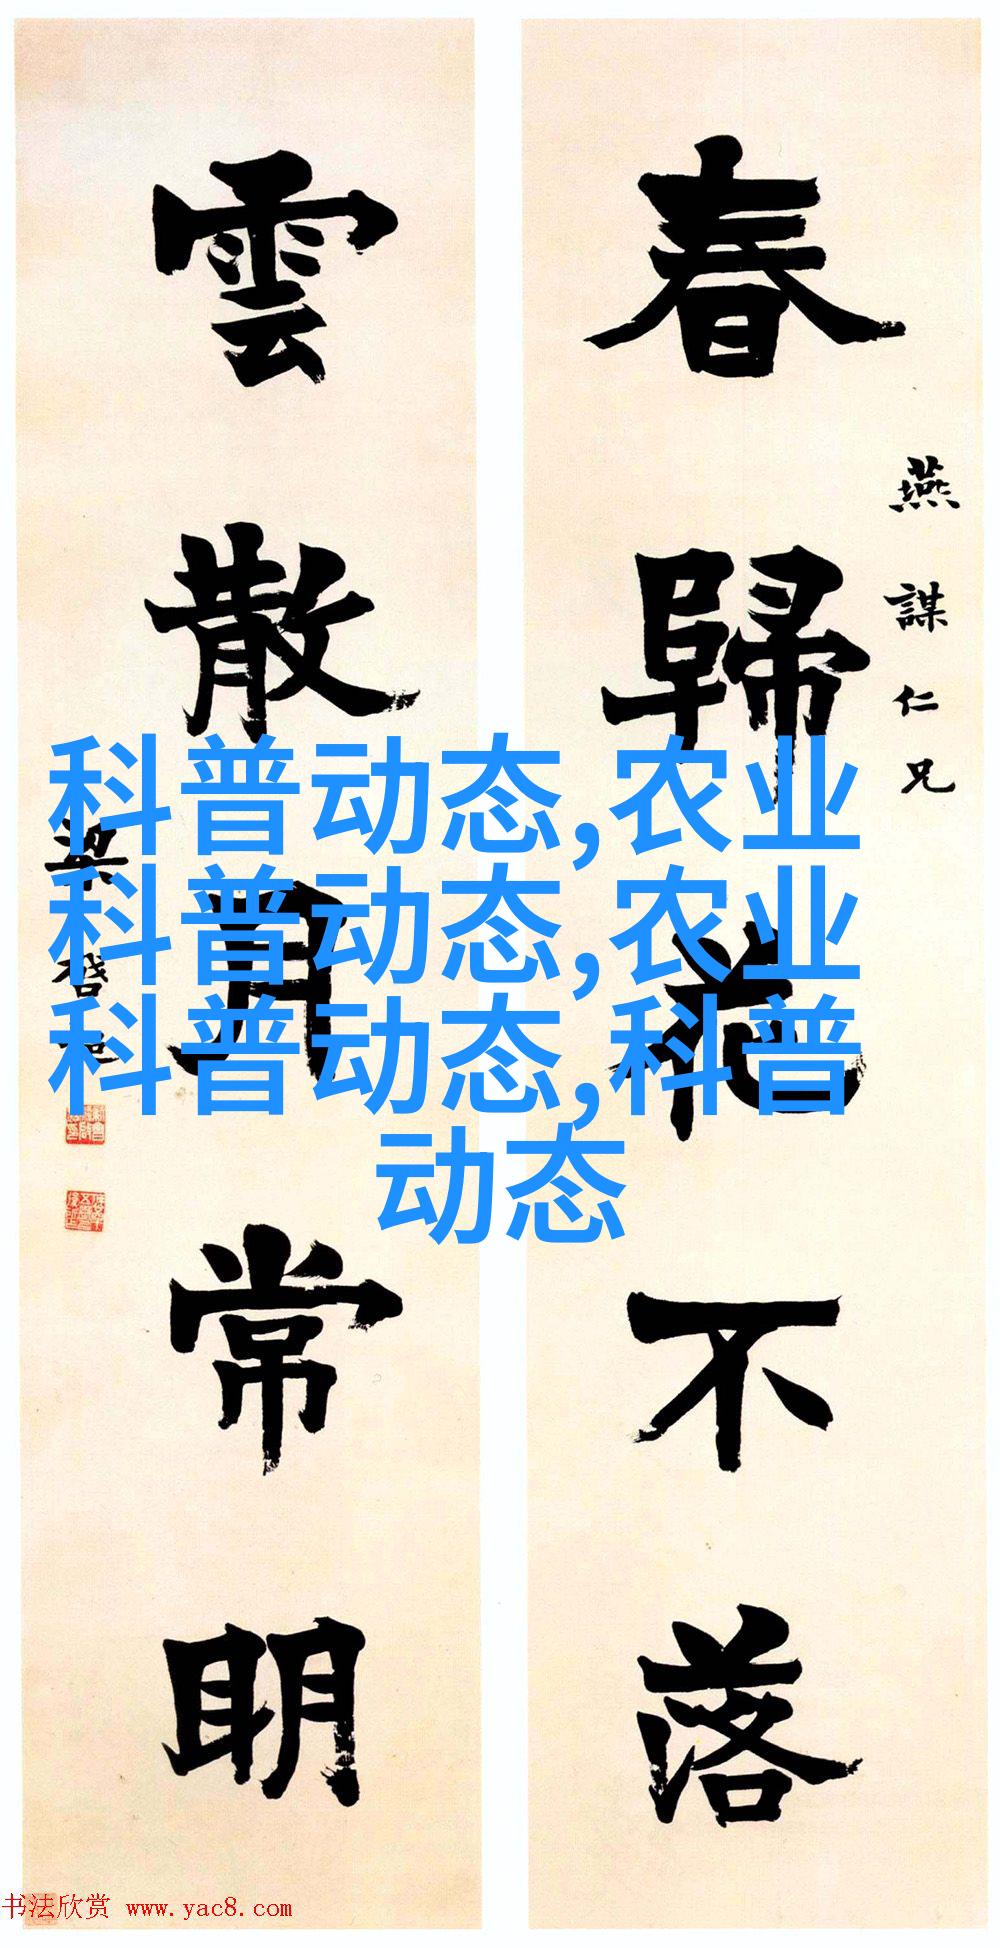 燕謀仁兄
春歸花不落
雲散月常明
梁啓超
科普动态,农业
科普动态,农业
科普动态,科普
动态
书法欣赏 www.yac8.com